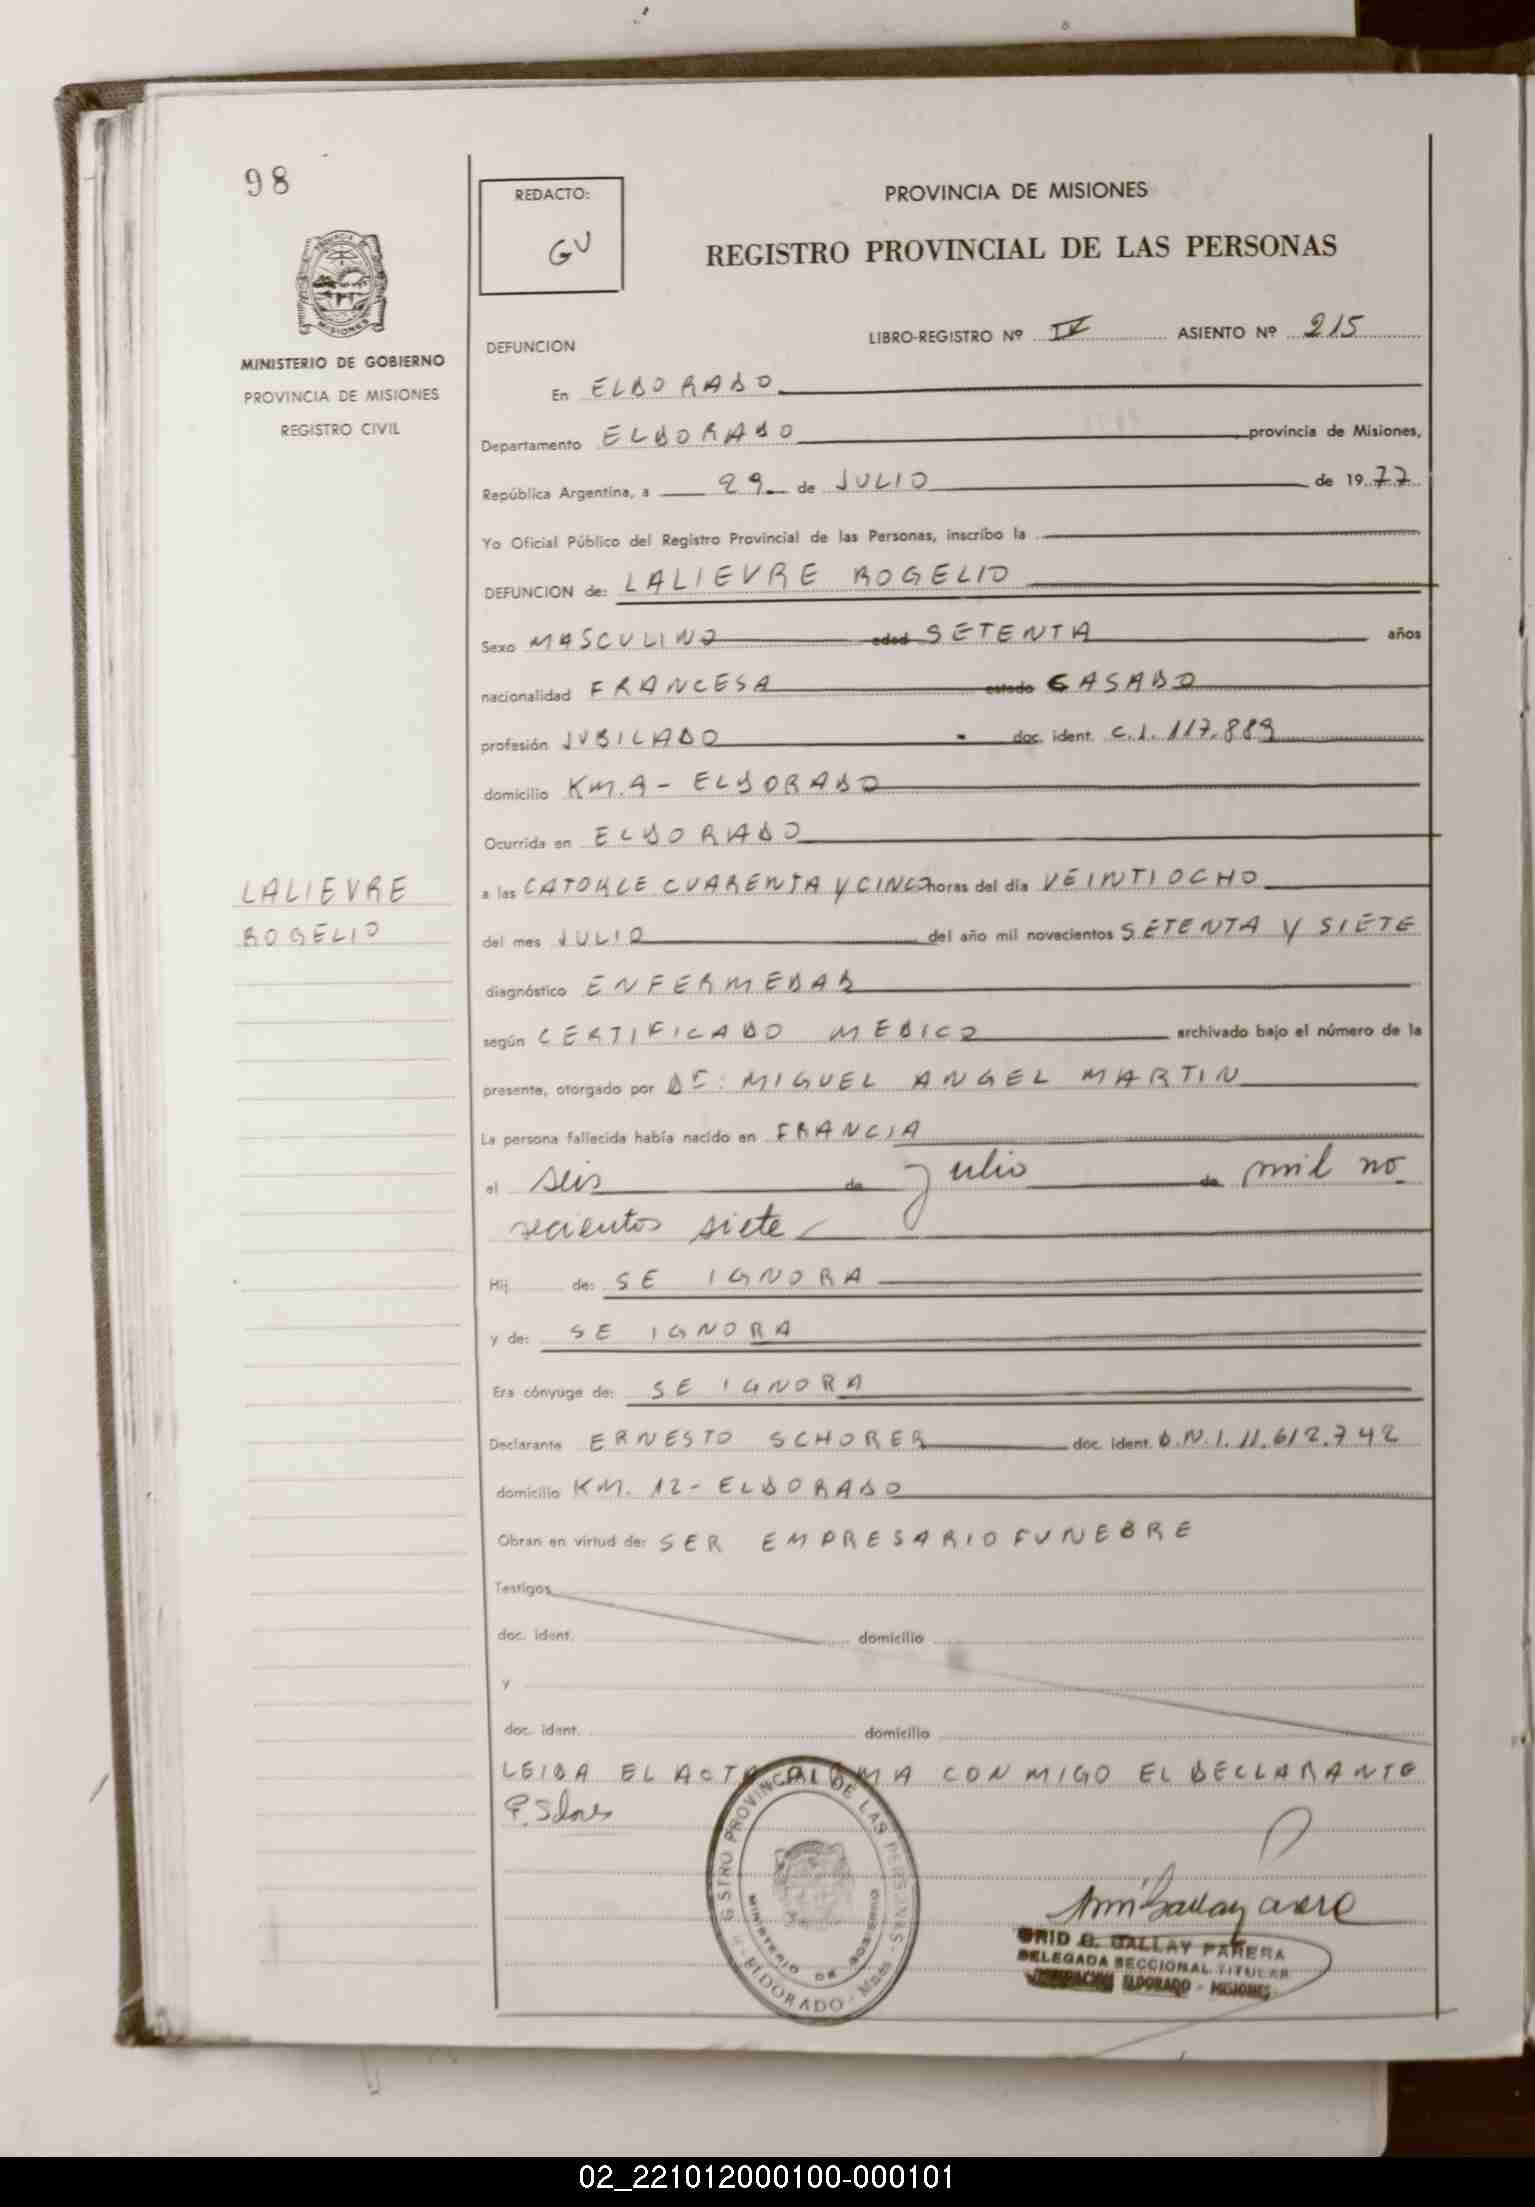 98
REDACTO:
GU
PROVINCIA DE MISIONES
REGISTRO PROVINCIAL DE LAS PERSONAS
MISIONES
MINISTERIO DE GOBIERNO
PROVINCIA DE MISIONES
REGISTRO CIVIL
LIBRO-REGISTRO Nº IV ASIENTO Nº 215
DEFUNCION
En ELDORADO
Departamento ELDORADO provincia de Misiones,
República Argentina, a 29 de JULIO de 1977
Yo Oficial Público del Registro Provincial de las Personas, inscribo la
DEFUNCION de: LALIEVRE ROGELIO
Sexo MASCULINO edad SETENTA años
nacionalidad FRANCESA estado CASADO
profesión JUBILADO doc. ident. C.I. 117.889
domicilio KM. 9 - ELDORADO
Ocurrida en ELDORADO
LALIEVRE
ROGELIO
a las CATORCE CUARENTA Y CINCO horas del día VEINTIOCHO
del mes JULIO del año mil novecientos SETENTA Y SIETE
diagnóstico ENFERMEDAD
según CERTIFICADO MEDICO archivado bajo el número de la
presente, otorgado por DR: MIGUEL ANGEL MARTIN
La persona fallecida había nacido en FRANCIA
el seis de julio de mil no
vecientos siete
Hij de: SE IGNORA
y de: SE IGNORA
Era cónyuge de: SE IGNORA
Declarante ERNESTO SCHORER doc. ident. D.N.I. 11.612.742
domicilio KM. 12 - ELDORADO
Obran en virtud de: SER EMPRESARIO FUNEBRE
Testigos
doc. ident. domicilio
y
doc. ident. domicilio
LEIDA EL ACTA FIRMA CONMIGO EL DECLARANTE
REGISTRO PROVINCIAL DE LAS PERSONAS
MINISTERIO DE GOBIERNO
ELDORADO - Mnes
GRID G. GALLAY PARERA
DELEGADA SECCIONAL TITULAR
ELDORADO - MISIONES
02_221012000100-000101